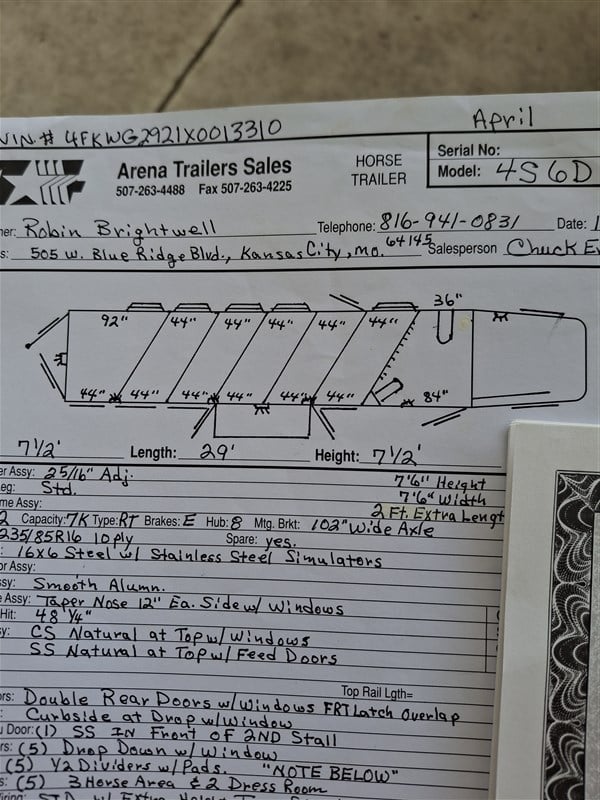 VIN.# 4FKWG2921X0013310 April
Arena Trailers Sales
507-263-4488 Fax 507-263-4225
HORSE
TRAILER
Serial No:
Model: 4S6D
ner: Robin Brightwell Telephone: 816-941-0831 Date: 1
s: 505 W. Blue Ridge Blvd., Kansas City, Mo. 64145 Salesperson Chuck Ev
36"
92" 44" 44" 44" 44" 44"
44" 44" 44" 44" 44" 44" 84"
7 1/2' Length: 29' Height: 7 1/2'
er Assy: 2 5/16" Adj. 7'6" Height
eg: Std. 7'6" Width
me Assy: 2 Ft. Extra Lengt
2 Capacity: 7K Type: RT Brakes: E Hub: 8 Mtg. Brkt: 102" Wide Axle
235/85R16 10 ply Spare: yes.
: 16x6 Steel w/ Stainless Steel Simulators
or Assy:
ssy: Smooth Alumn.
e Assy: Taper Nose 12" Ea. Side w/ Windows
Hit: 48 1/4"
y: CS Natural at Top w/ Windows
SS Natural at Top w/ Feed Doors
Top Rail Lgth=
rs: Double Rear Doors w/Windows FRT Latch Overlap
: Curbside at Drop w/Window
u Door: (1) SS IN Front OF 2ND Stall
rs: (5) Drop Down w/ Window
(5) 1/2 Dividers w/ Pads. "NOTE BELOW"
s: (5) 3 Horse Area & 2 Dress Room